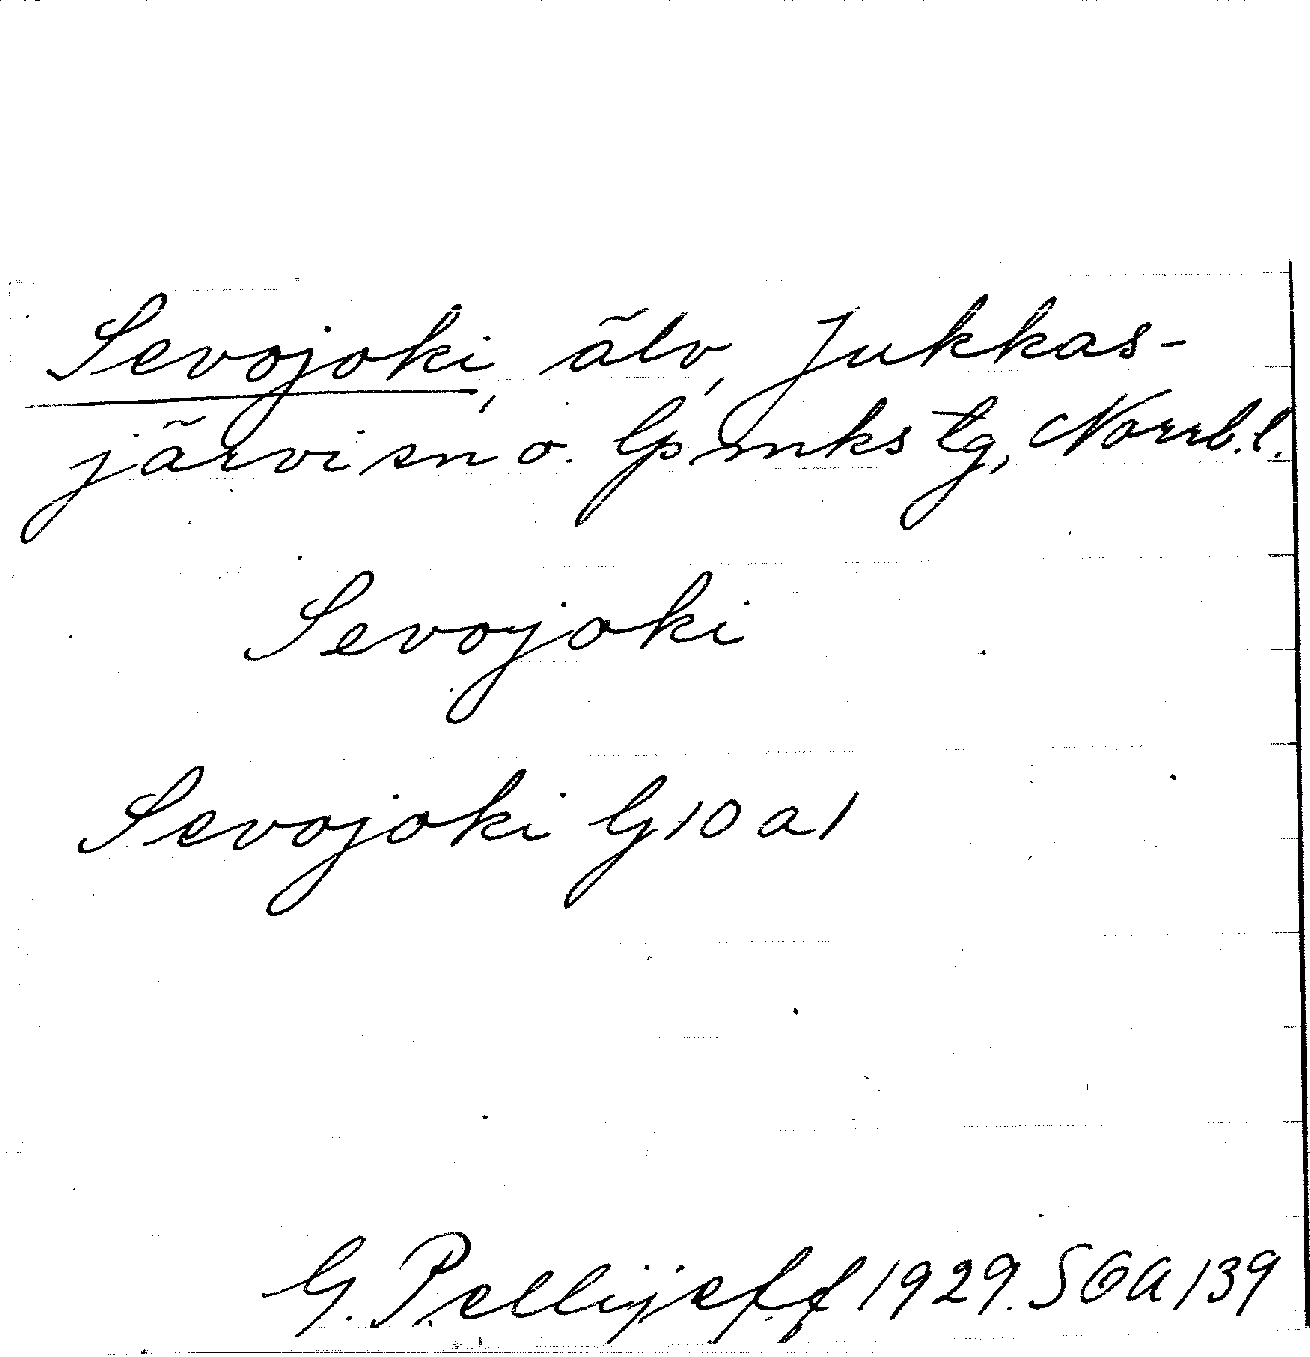 Sevojoki, älv, Jukkas-
järvi sn o. lpmkstg, Norrb.l.
Sevojoki
Sevojoki G10a1
G. Pellijeff 1929. SOA 139